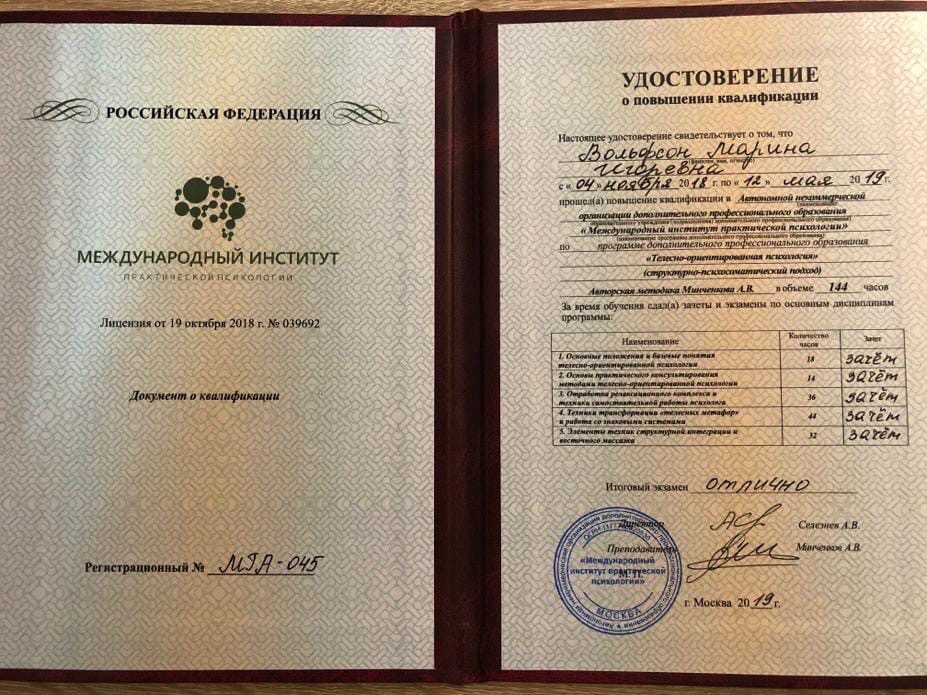 РОССИЙСКАЯ ФЕДЕРАЦИЯ
МЕЖДУНАРОДНЫЙ ИНСТИТУТ
ПРАКТИЧЕСКОЙ ПСИХОЛОГИИ
Лицензия от 19 октября 2018 г. № 039692
Документ о квалификации
Регистрационный № МТА-045
УДОСТОВЕРЕНИЕ
о повышении квалификации
Настоящее удостоверение свидетельствует о том, что
Вольфсон Марина
(фамилия, имя, отчество)
Игоревна
с « 04 » ноября 2018 г. по « 12 » мая 2019 г.
прошел(а) повышение квалификации в Автономной некоммерческой
(наименование)
организации дополнительного профессионального образования
образовательного учреждения (подразделения) дополнительного профессионального образования)
«Международный институт практической психологии»
(наименование программы дополнительного профессионального образования)
по программе дополнительного профессионального образования
«Телесно-ориентированная психология»
(структурно-психосоматический подход)
Авторская методика Минченкова А.В. в объеме 144 часов
За время обучения сдал(а) зачеты и экзамены по основным дисциплинам
программы:
Наименование Количество часов Зачет
1. Основные положения и базовые понятия
телесно-ориентированной психологии 18 зачём
2. Основы практического консультирования
методами телесно-ориентированной психологии 14 зачём
3. Отработка релаксационного комплекса и
техники самостоятельной работы психолога 36 зачём
4. Техники трансформации «телесных метафор»
и работа со знаковыми системами 44 зачём
5. Элементы техник структурной интеграции и
восточного массажа 32 зачём
Итоговый экзамен отлично
Директор Селезнев А.В.
Преподаватель Минченков А.В.
М.П.
«Международный
институт практической
психологии»
МОСКВА
г. Москва 2019 г.